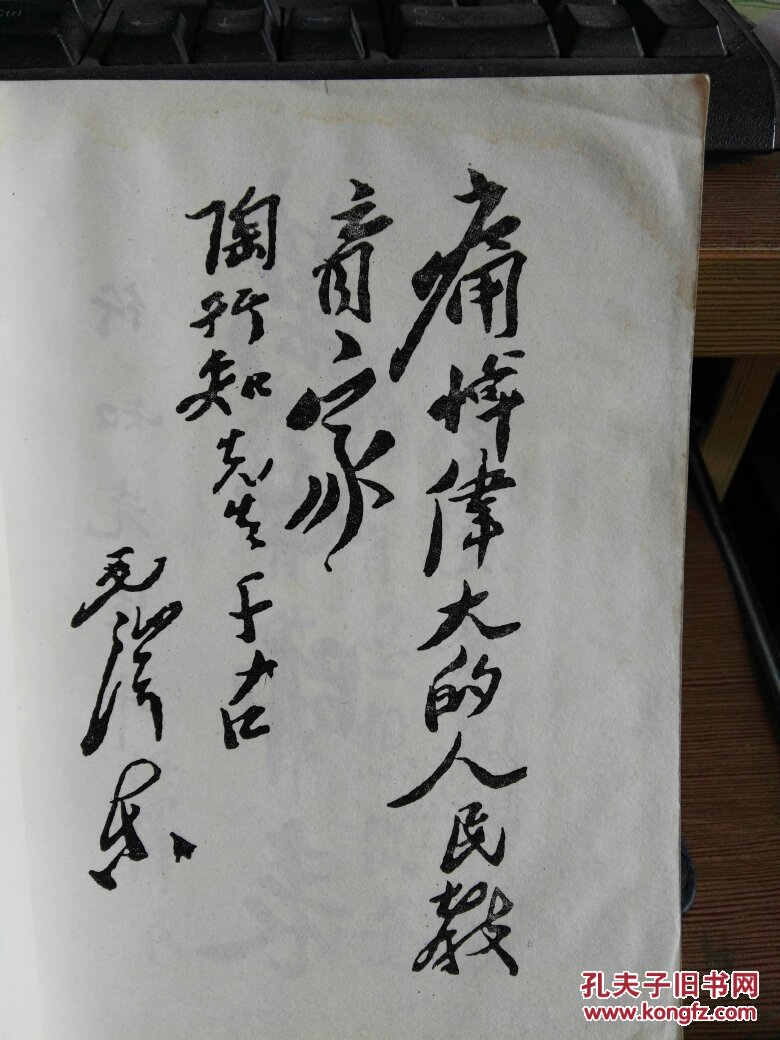 痛悼偉大的人民教
育家
陶行知先生千古
毛澤东
孔夫子旧书网
www.kongfz.com
Ctrl